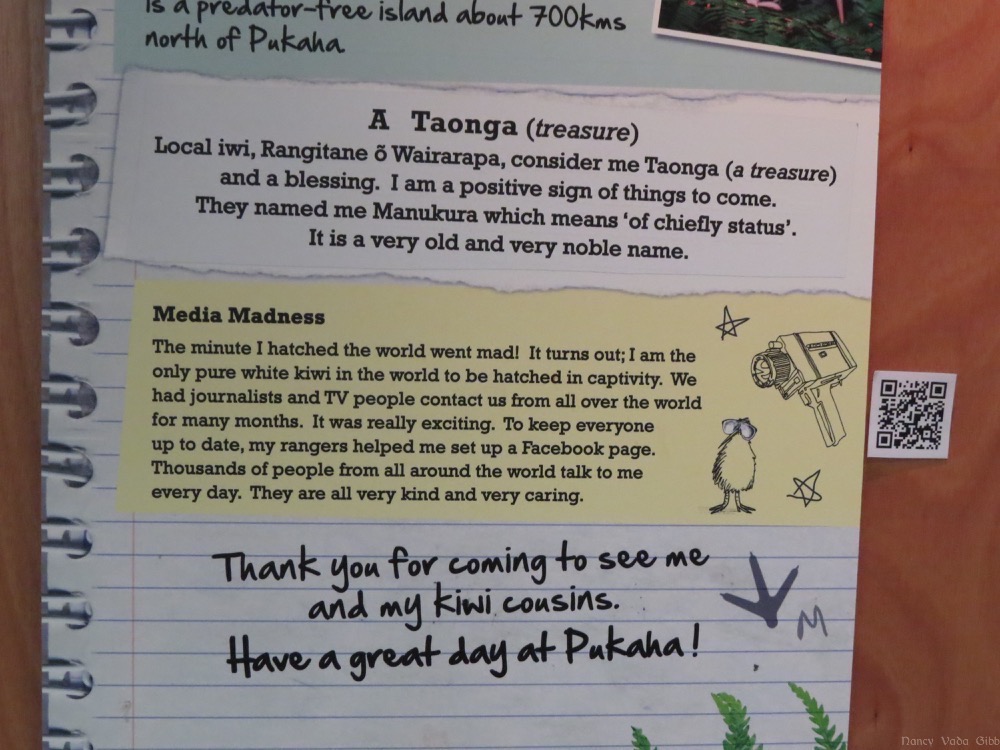 is a predator-free island about 700kms
north of Pukaha
A Taonga (treasure)
Local iwi, Rangitane õ Wairarapa, consider me Taonga (a treasure)
and a blessing. I am a positive sign of things to come.
They named me Manukura which means ‘of chiefly status’.
It is a very old and very noble name.
Media Madness
The minute I hatched the world went mad! It turns out; I am the
only pure white kiwi in the world to be hatched in captivity. We
had journalists and TV people contact us from all over the world
for many months. It was really exciting. To keep everyone
up to date, my rangers helped me set up a Facebook page.
Thousands of people from all around the world talk to me
every day. They are all very kind and very caring.
Thank you for coming to see me
and my kiwi cousins.
Have a great day at Pukaha!
M
Nancy Vada Gibb